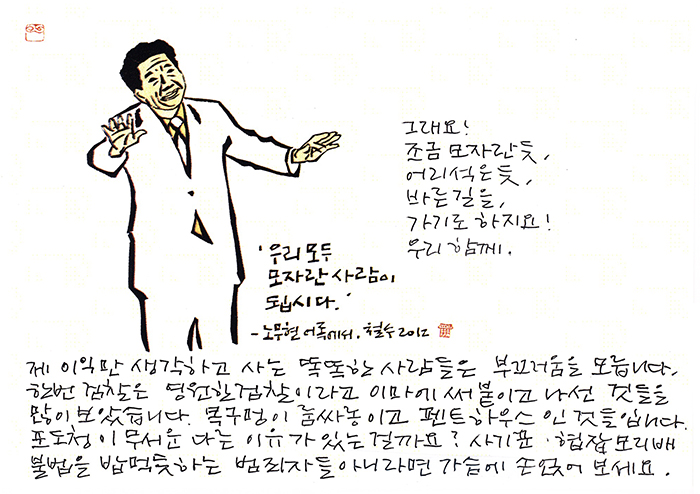 그래요!
조금 모자란 듯,
어리석은 듯,
바른 길을,
가기로 하지요!
우리 함께.
'우리 모두
모자란 사람이
됩시다.'
- 노무현 어록에서. 철수 2012
제 이익만 생각하고 사는 똑똑한 사람들은 부끄러움을 모릅니다.
한번 검찰은 영원한 검찰이라고 이마에 써 붙이고 나선 것들을
많이 보았습니다. 목구멍이 룸싸롱이고 펜트하우스인 것들입니다.
포도청이 무서운 다른 이유가 있는걸까요? 사기꾼·협잡모리배
불법을 밥먹듯하는 범죄자들 아니라면 가슴에 손얹어 보세요.